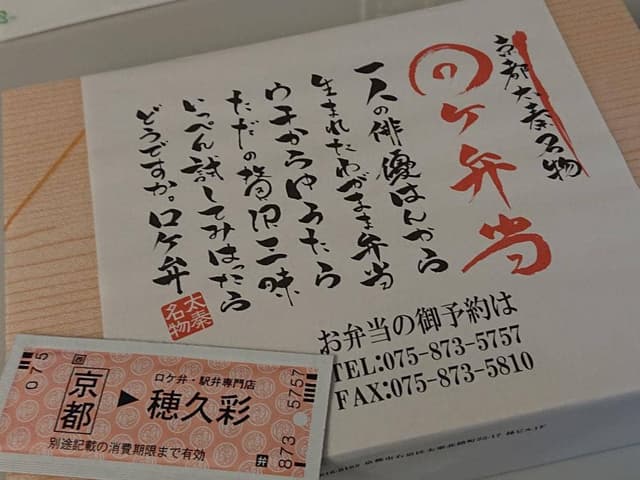 京都太秦名物
ロケ弁当
一人の俳優はんから
生まれたわがまま弁当
ウチからゆうたら
ただの贅沢三昧
いっぺん試してみはったら
どうですか。ロケ弁
太秦
名物
お弁当の御予約は
TEL:075-873-5757
FAX:075-873-5810
075
西
京都
▶
ロケ弁・駅弁専門店
穂久彩
別途記載の消費期限まで有効
弁
873 5757